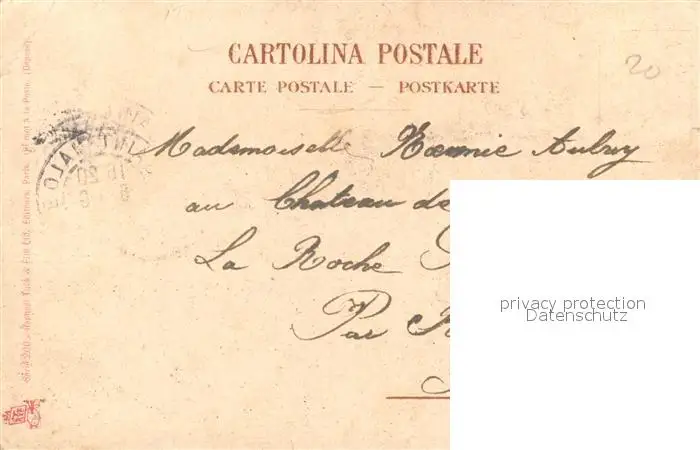 CARTOLINA POSTALE
CARTE POSTALE — POSTKARTE
20
Mademoiselle Aubry
au Chateau de
La Roche
Par
privacy protection
Datenschutz
Raphael Tuck & Fils Ltd, Editeurs, Paris.